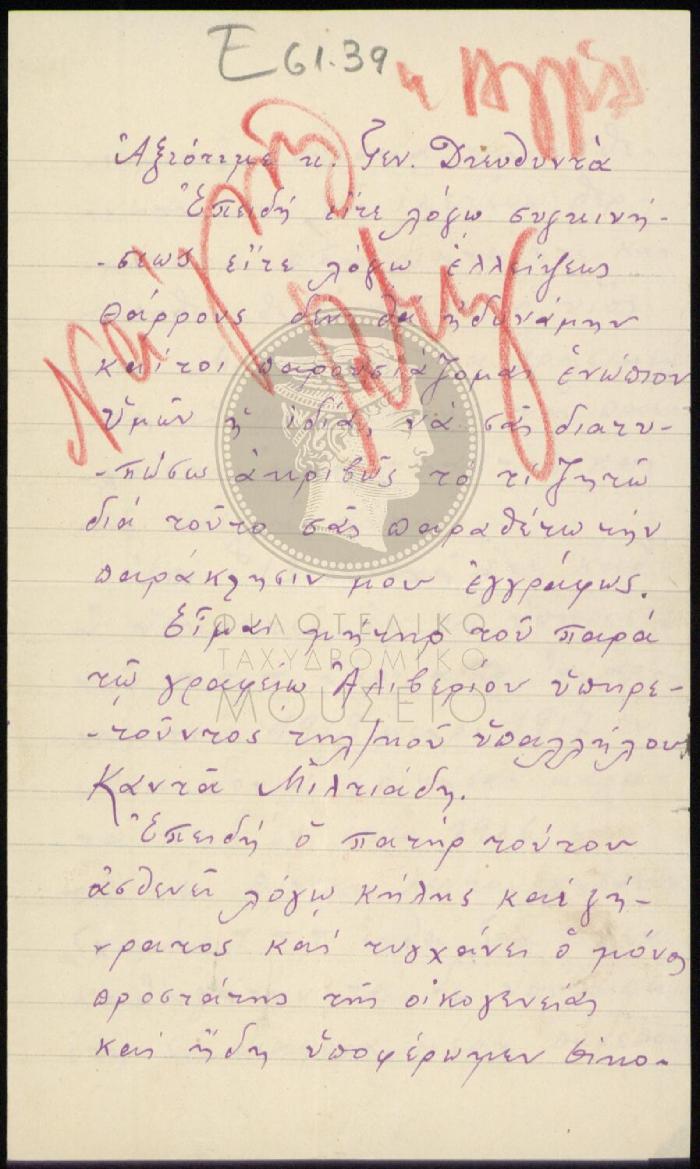 Ε 61.39
Ἀξιότιμε κ. Γεν. Διευθυντά
Ἐπειδή εἴτε λόγω συγκινή-
-σεως εἴτε λόγω ἐλλείψεως
θάρρους δέν θα ἠδυνάμην
καίτοι παρουσιάζομαι ἐνώπιον
ὑμῶν ἡ ἰδία, νά σᾶς διατυ-
-πώσω ἀκριβῶς τό τί ζητῶ
διά τοῦτο σᾶς παραθέτω τήν
παράκλησιν μου ἐγγράφως.
Εἶμαι μήτηρ τοῦ παρά
τῷ γραφείῳ Ἀλιβερίου ὑπηρε-
-τοῦντος τηλ/κοῦ ὑπαλλήλου
Καντᾶ Μιλτιάδη.
Ἐπειδή ὁ πατήρ τούτου
ἀσθενεῖ λόγω κήλης καί γή-
ρατος καί τυγχάνει ὁ μόνος
προστάτης τῆς οἰκογενείας
καί ἤδη ὑποφέρωμεν οἰκο-
ΦΙΛΟΤΕΛΙΚΟ
ΤΑΧΥΔΡΟΜΙΚΟ
ΜΟΥΣΕΙΟ